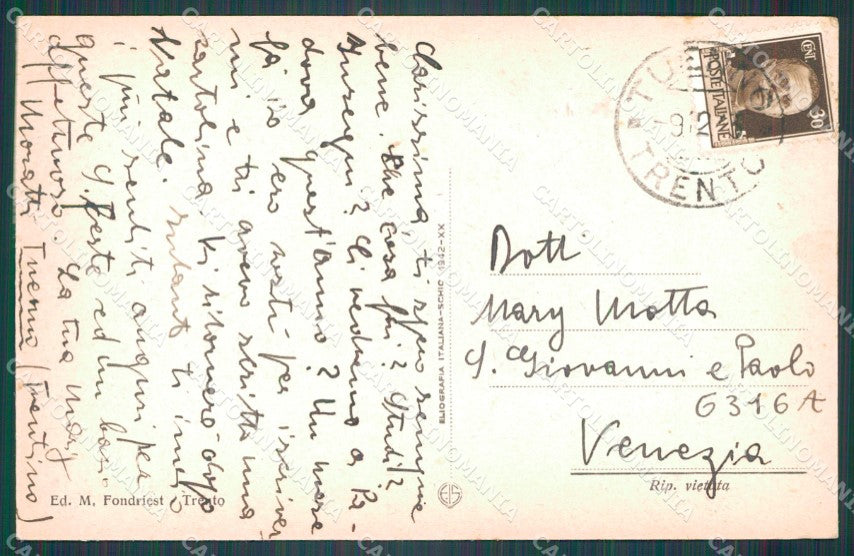 Carissima, ti spero sempre
bene. Che cosa fai? Studi?
Insegni? Ci vedremo a Pa-
dova quest'anno? Un mese
fa io ero costì per iscriver
mi e ti avevo scritto una
cartolina. Vi ritornerò dopo
Natale. Intanto ti invio
i più sentiti auguri per
queste S. Feste ed un bacio
affettuoso La tua Mary
Moratti Tuenno (Trentino)
Ed. M. Fondriest - Trento
ELIOGRAFIA ITALIANA-SCHIO 1942-XX
CENT. 30
POSTE ITALIANE
TRENTO
Dott
Mary Motta
S. Giovanni e Paolo
6316 A
Venezia
Rip. vietata
CARTOLINOMANIA